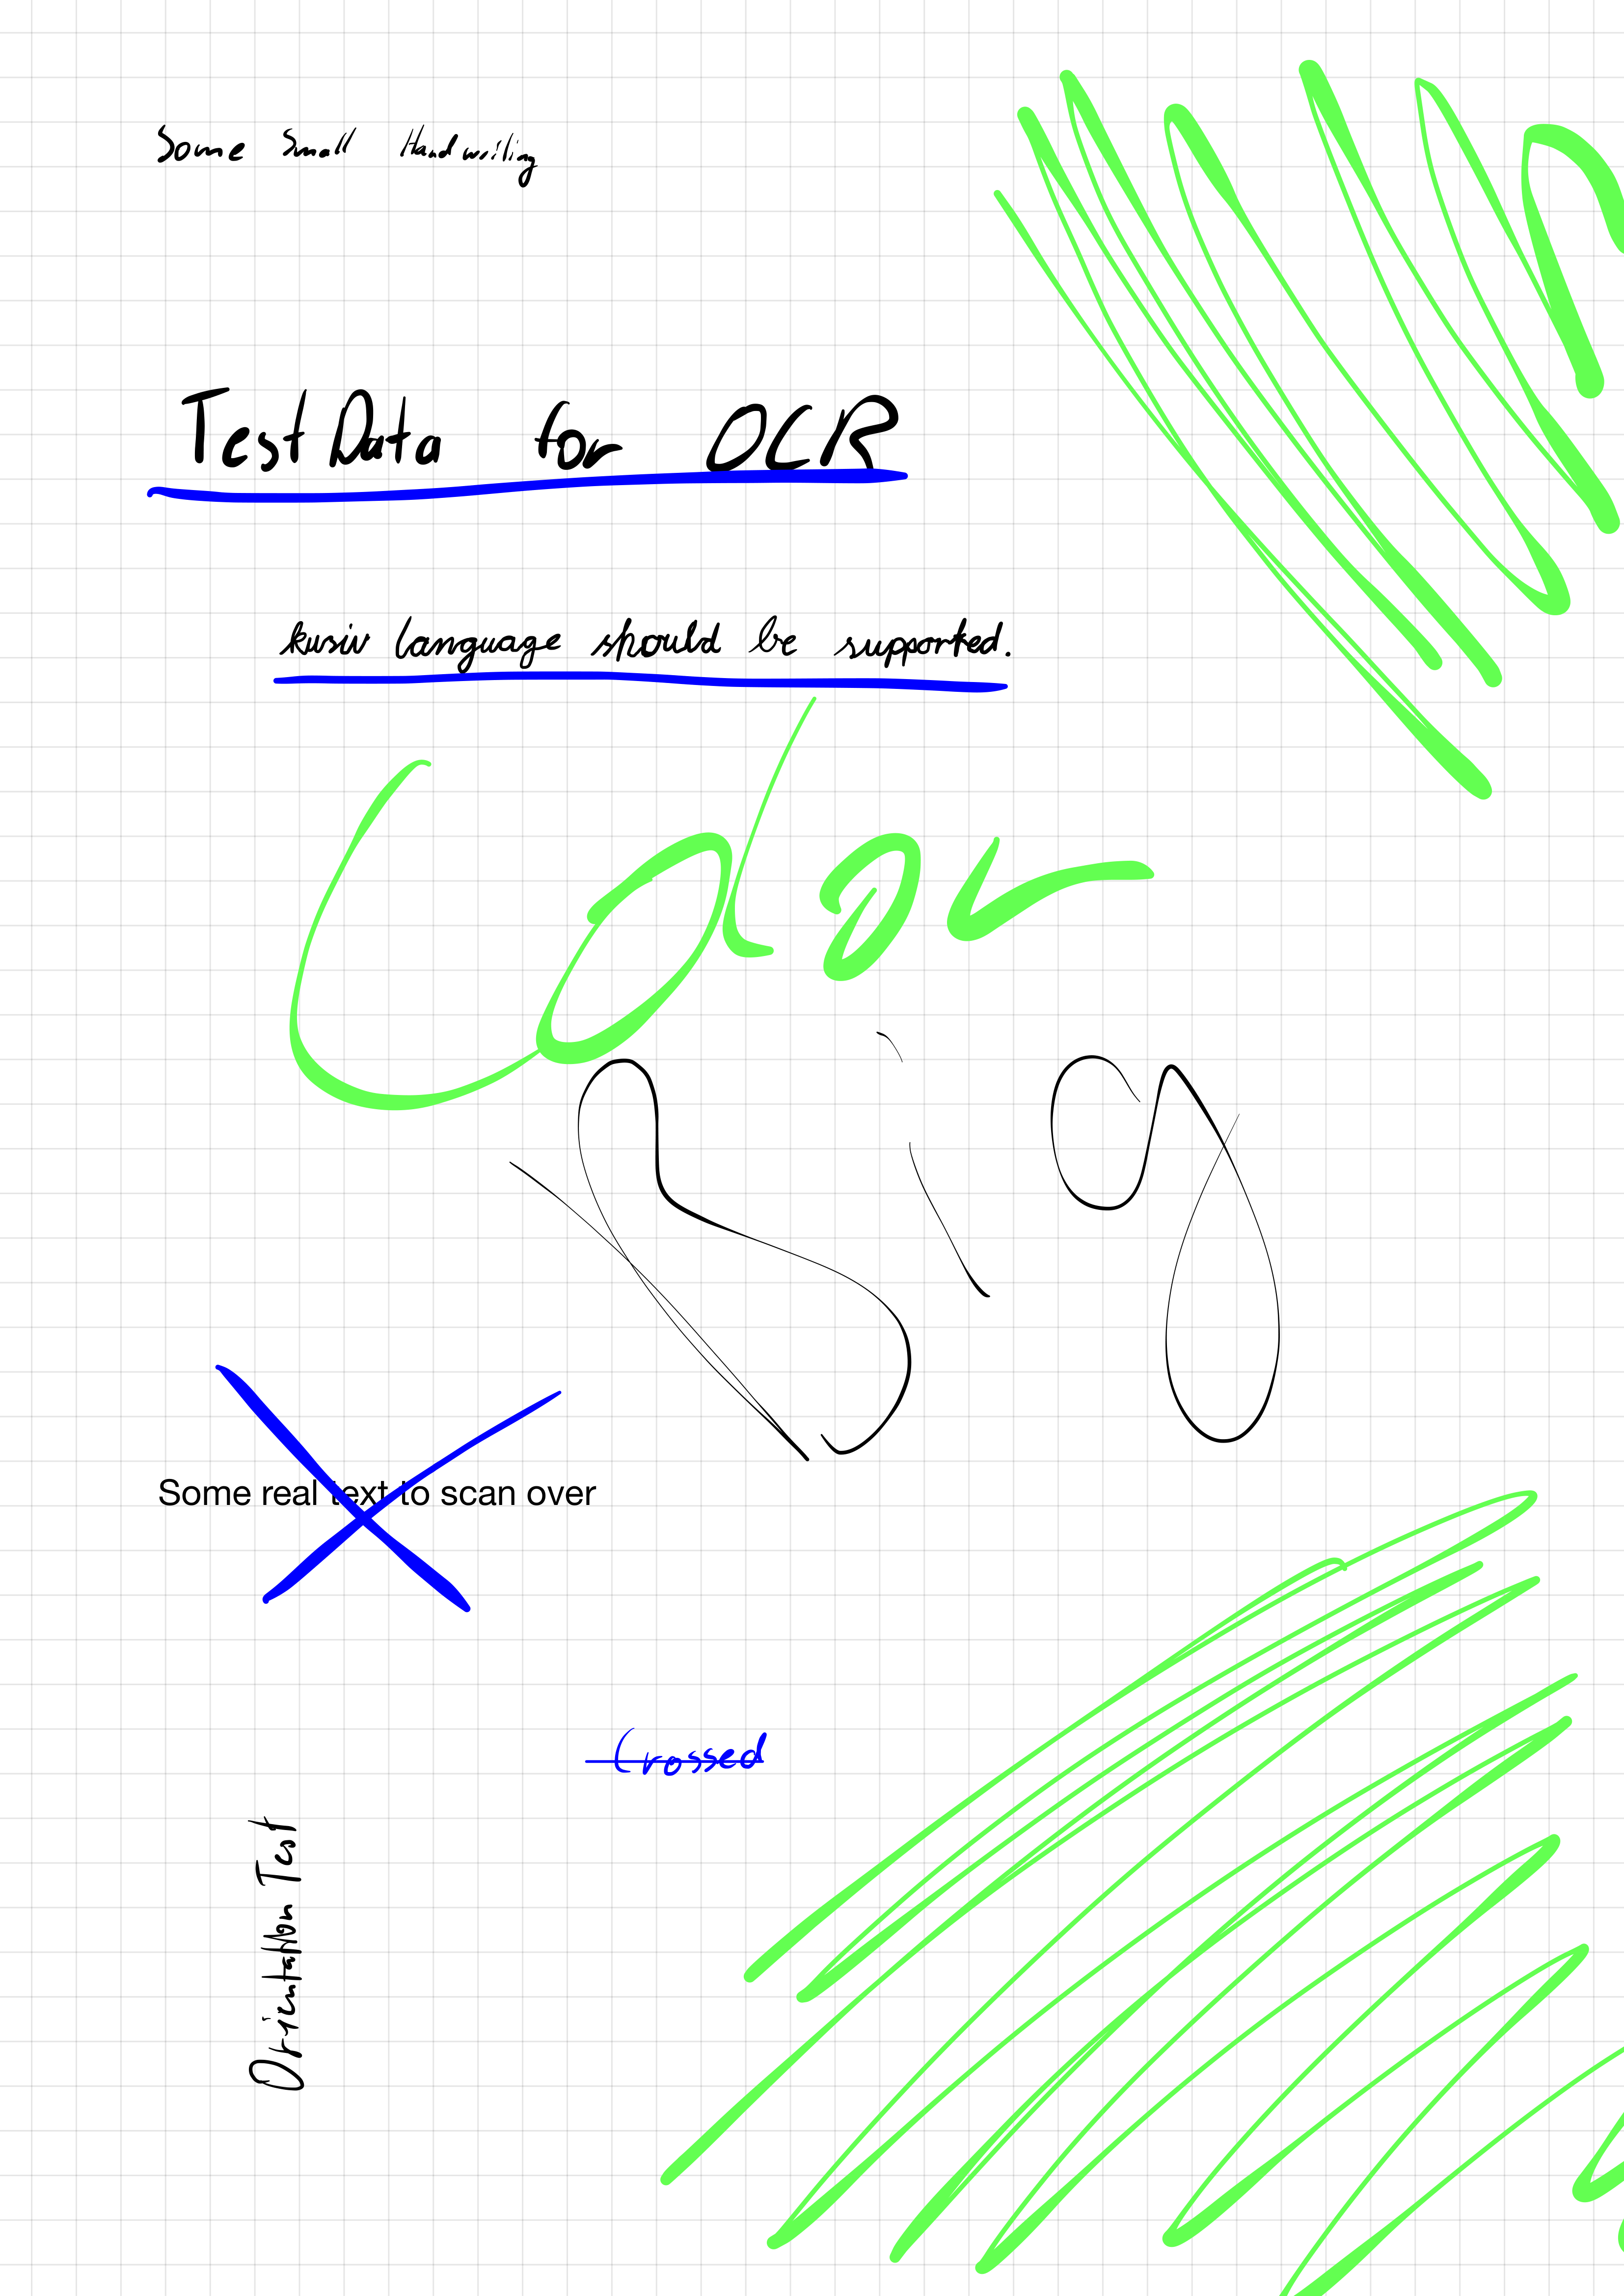 Some Small Handwriting
Test Data for OCR
kursiv language should be supported.
Color
Big
Some real text to scan over
Crossed
Orientation Test